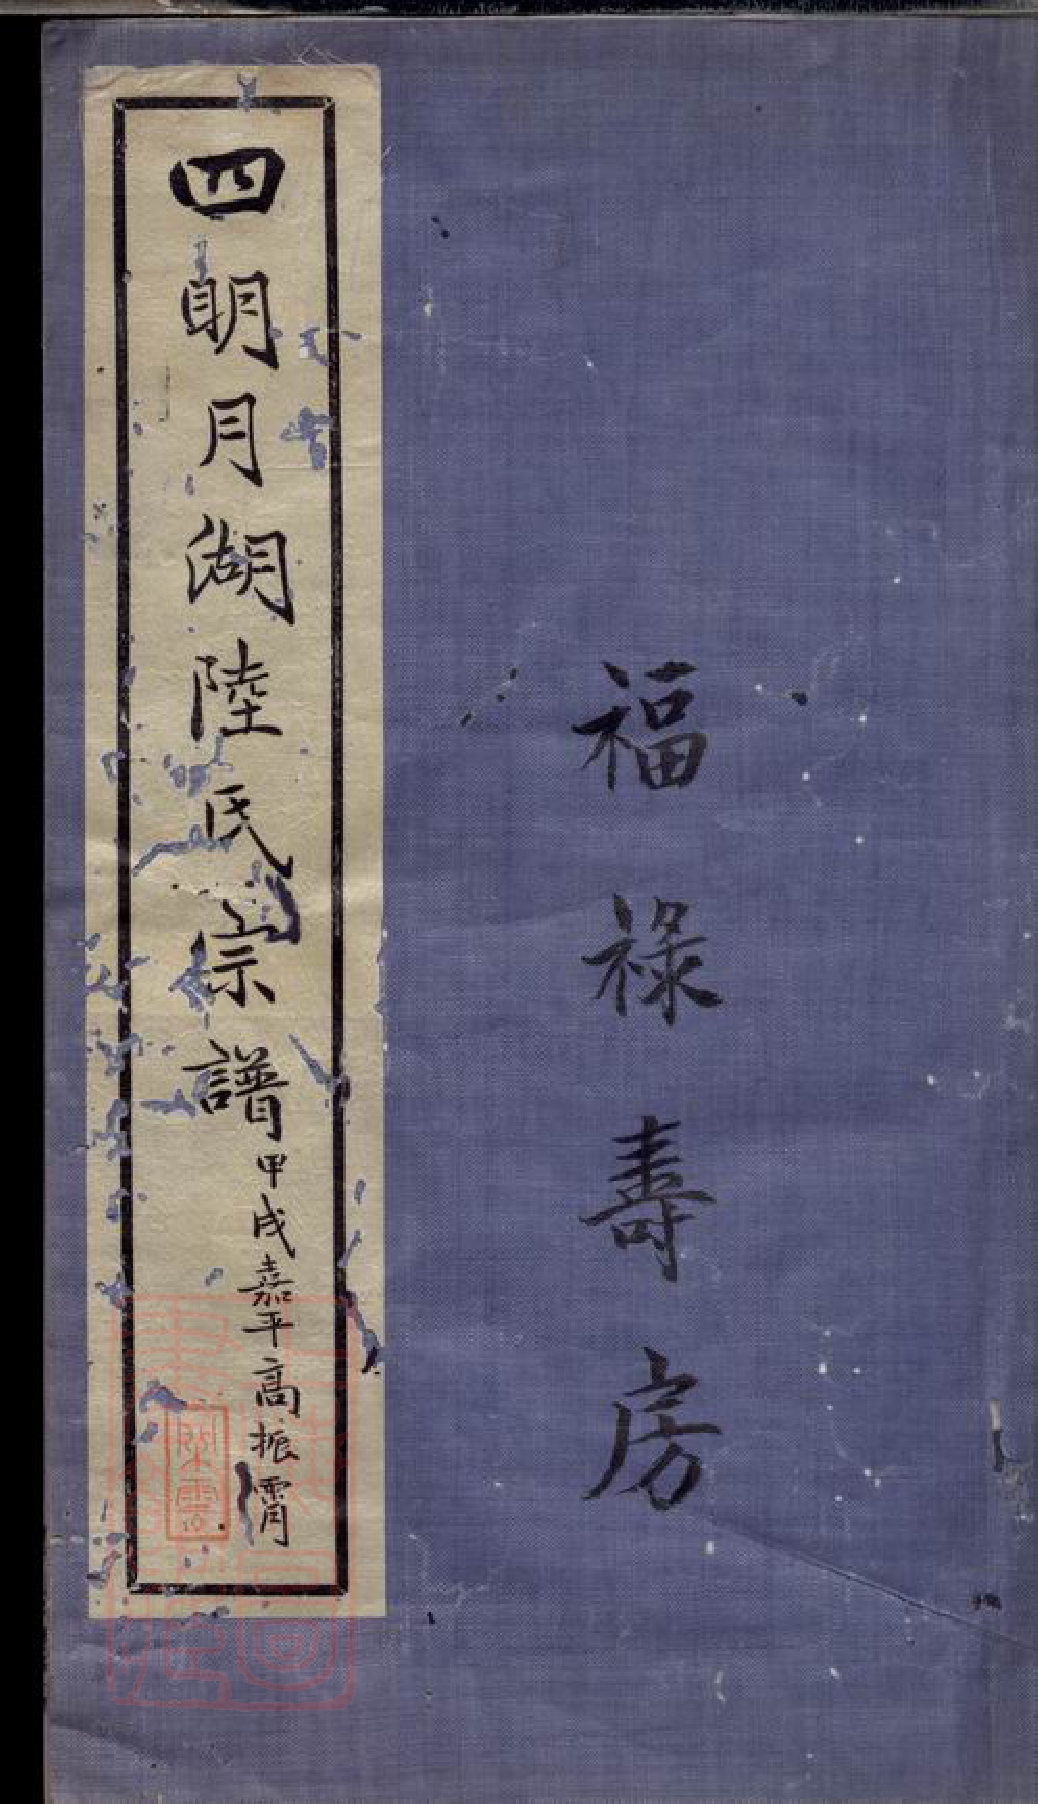 福祿壽房
四明月湖陸氏宗譜
甲戌嘉平高振霄